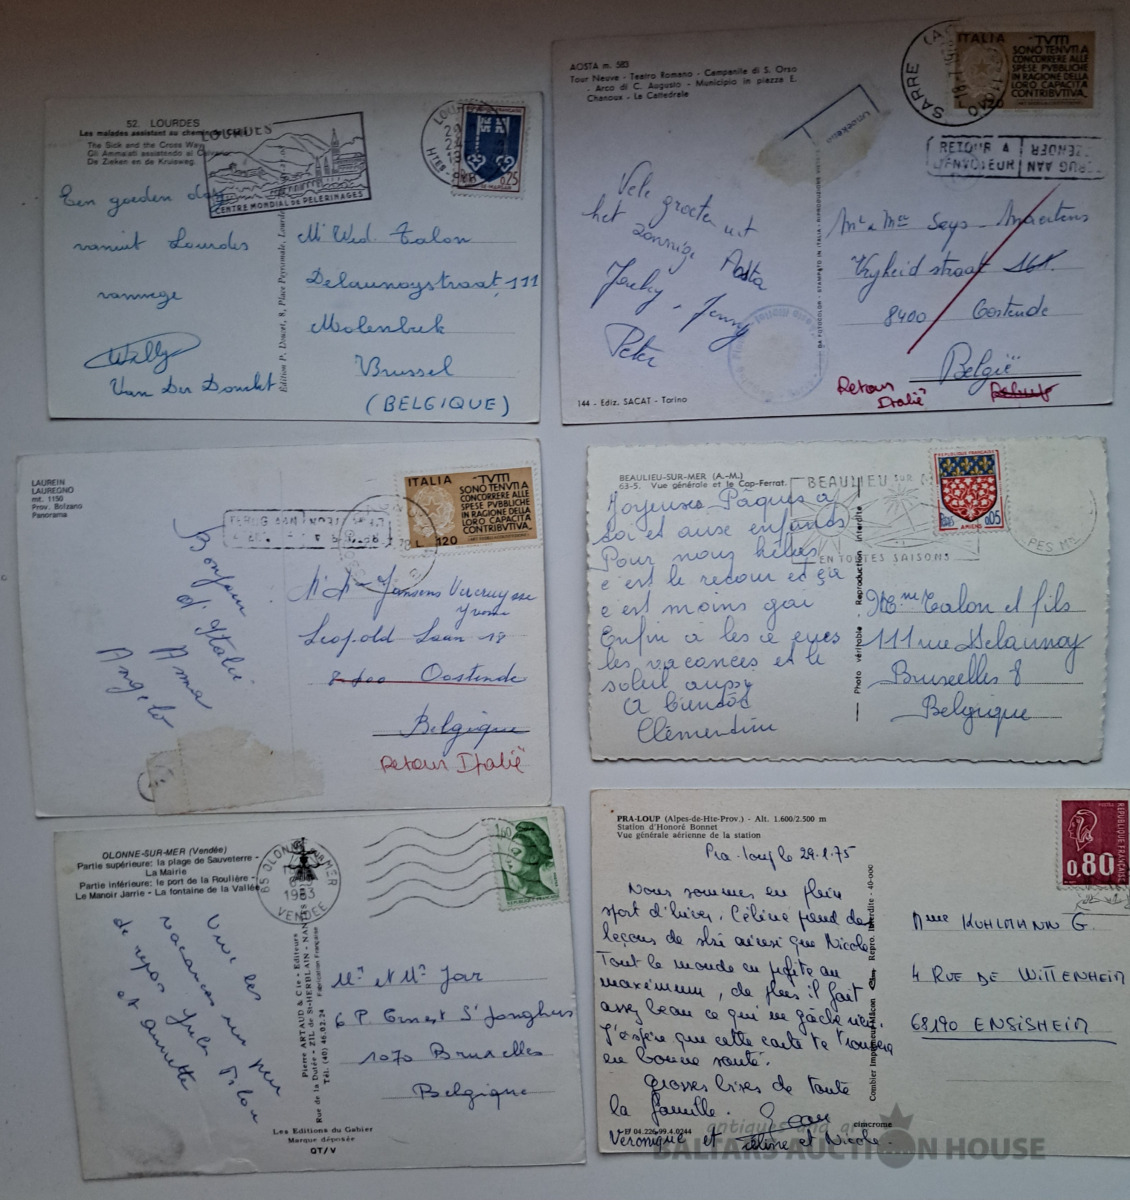 52. LOURDES
Les malades assistant au chemin
The Sick and the Cross Way
Gli Ammalati assistendo al
De Zieken en de Kruisweg.
LOURDES
CENTRE MONDIAL DE PELERINAGES
0,25
Een goeden dag
vanuit Lourdes
vanwege
Willy
Van Der Donckt
Edition P. Doucet, 8, Place Peyramale, Lourdes
Mr Wed. Talon
Delaunoystraat, 111
Molenbeek
Brussel
(BELGIQUE)
AOSTA m. 583
Tour Neuve - Teatro Romano - Campanile di S. Orso
- Arco di C. Augusto - Municipio in piazza E.
Chanoux - La Cattedrale
SARRE (AO)
ITALIA
TVTTI
SONO TENVTI A
CONCORRERE ALLE
SPESE PVBBLICHE
IN RAGIONE DELLA
LORO CAPACITA
CONTRIBVTIVA
RETOUR A
L'ENVOYEUR
TERUG AAN
AFZENDER
Vele groeten uit
het zonnige Aosta
Jacky, Jenny
Peter
Mr & Mevr Seys - Maertens
Vrijheidstraat
8400 Oostende
België
Retour
Italië
144 - Ediz. SACAT - Torino
LAUREIN
LAUREGNO
mt. 1150
Prov. Bolzano
Panorama
ITALIA
TVTTI
SONO TENVTI A
CONCORRERE ALLE
SPESE PVBBLICHE
IN RAGIONE DELLA
LORO CAPACITA
CONTRIBVTIVA
L. 120
TERUG AAN
Bonjour
d'Italie
Anna
Angelo
Janssens Vercruysse
Yvonne
Leopold Laan 18
8400 Oostende
Belgique
Retour Italië
BEAULIEU-SUR-MER (A.-M.)
63-5. Vue générale et le Cap-Ferrat.
BEAULIEU SUR MER
EN TOUTES SAISONS
REPUBLIQUE FRANÇAISE
0,05
AMIENS
Joyeuses Pâques à
toi et aux enfants
Pour nous hélas
c'est le retour et ça
c'est moins gai
Enfin à les
les vacances et le
soleil aussi
A bientôt
Clémentine
Photo véritable Reproduction Interdite
Mme Talon et fils
111 rue Delaunoy
Bruxelles 8
Belgique
OLONNE-SUR-MER (Vendée)
Partie supérieure: la plage de Sauveterre -
La Mairie
Partie inférieure: le port de la Roulière -
Le Manoir Jarrie - La fontaine de la Vallée
85 OLONNE SUR MER
1983
VENDEE
1,60
Vive les
vacances un peu
de repos Jules Talon
et Annette
Pierre ARTAUD & Cie - Editeurs
Rue de la Dutée - ZIL de St-HERBLAIN - NANTES
Tél. (40) 46.02.24 Fabrication Française
Mr et Me Jar
6 P. Ernest St Jonghers
1070 Bruxelles
Belgique
Les Editions du Gabier
Marque déposée
QT/V
PRA-LOUP (Alpes-de-Hte-Prov.) - Alt. 1.600/2.500 m
Station d'Honoré Bonnet
Vue générale aérienne de la station
REPUBLIQUE FRANCAISE
0,80
Pra-Loup le 29.1.75
Nous sommes en plein
sport d'hiver. Céline prend des
leçons de ski ainsi que Nicole
Tout le monde en profite au
maximum, de plus il fait
assez beau ce qui ne gâche rien.
J'espère que cette carte te trouvera
en bonne santé.
Grosses bises de toute
la famille. Jean
Véronique et Céline et Nicole
Combier Imprimeur Mâcon Repro. Interdite - 40-000
cimcrome
04.226-99.4.0244
Mme KUHLMANN G.
4 RUE DE WITTENHEIM
68190 ENSISHEIM
antiques and art
BALTARS AUCTION HOUSE